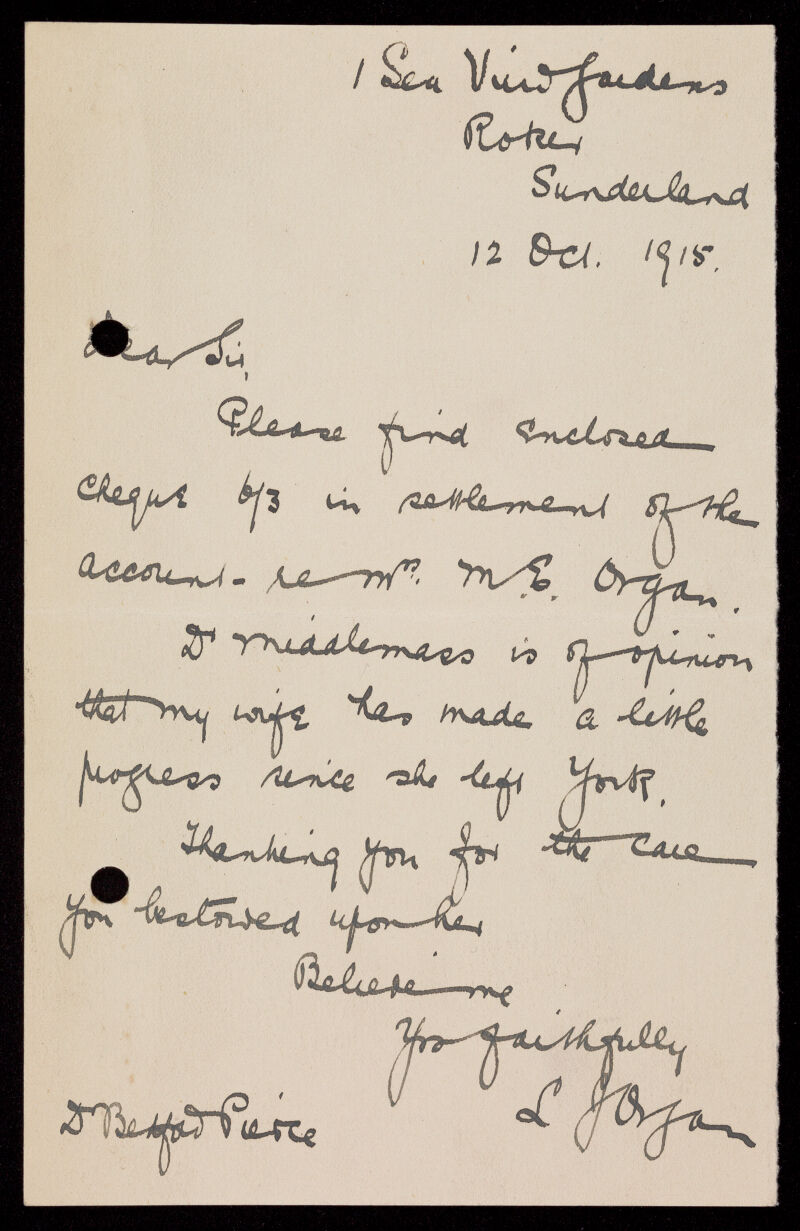 1 Sea View Gardens
Roker
Sunderland
12 Oct. 1915.
Dear Sir,
Please find enclosed
cheque 6/3 in settlement of the
account - re Mrs. M.E. Organ.
Dr Middlemass is of opinion
that my wife has made a little
progress since she left York.
Thanking you for the care
you bestowed upon her
Believe me
Yrs faithfully
L J Organ
Dr Bedford Pierce